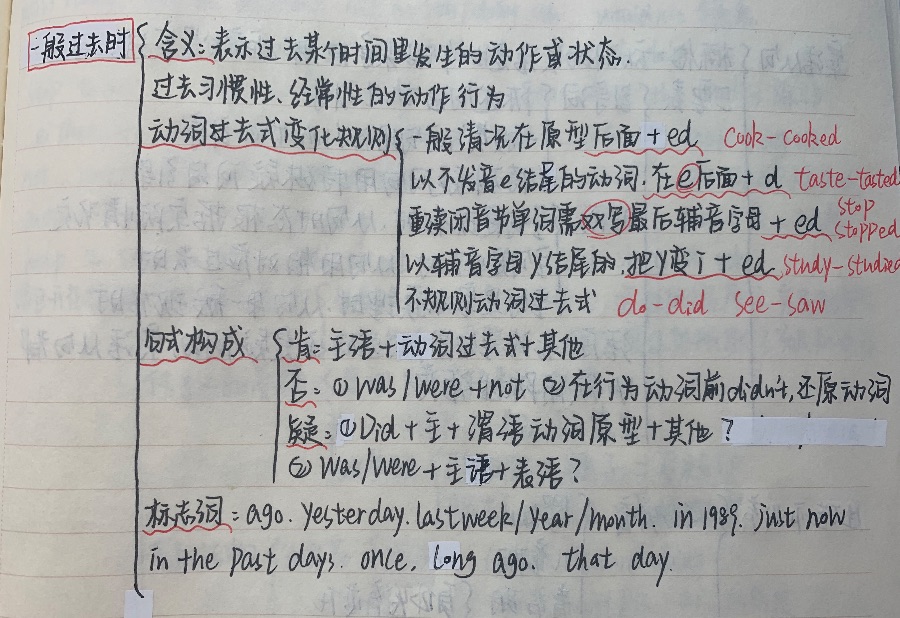 一般过去时
含义:表示过去某个时间里发生的动作或状态.
过去习惯性、经常性的动作行为
动词过去式变化规则
一般情况在原型后面+ed cook-cooked
以不发音e结尾的动词.在e后面+d taste-tasted
重读闭音节单词需双写最后辅音字母+ed stop stopped
以辅音字母y结尾的.把y变i+ed study-studied
不规则动词过去式 do-did see-saw
构成
肯:主语+动词过去式+其他
否:① was/were+not ②在行为动词前didn't,还原动词
疑:①Did+主+谓语动词原型+其他?
② Was/Were+主语+表语?
标志词:ago. yesterday. last week/year/month. in 1989. just now
in the past days. once. long ago. that day.